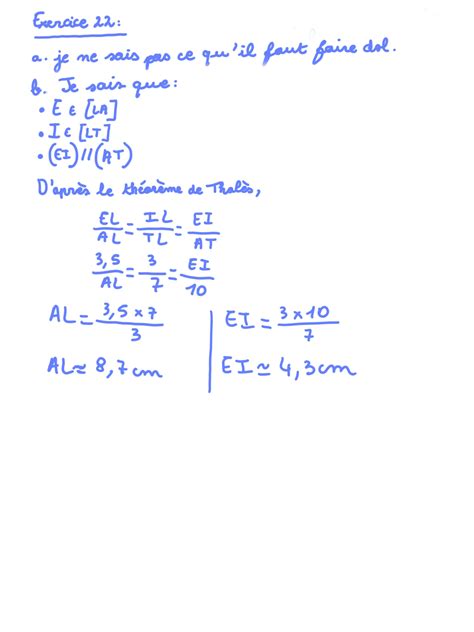 Exercice 22:
a. je ne sais pas ce qu'il faut faire dsl.
b. Je sais que:
• E ∈ [LA]
• I ∈ [LT]
• (EI)//(AT)
D'après le théorème de Thalès,
EL/AL = IL/TL = EI/AT
3,5/AL = 3/7 = EI/10
AL = 3,5 × 7/3 | EI = 3 × 10/7
AL ≃ 8,7 cm | EI ≃ 4,3 cm